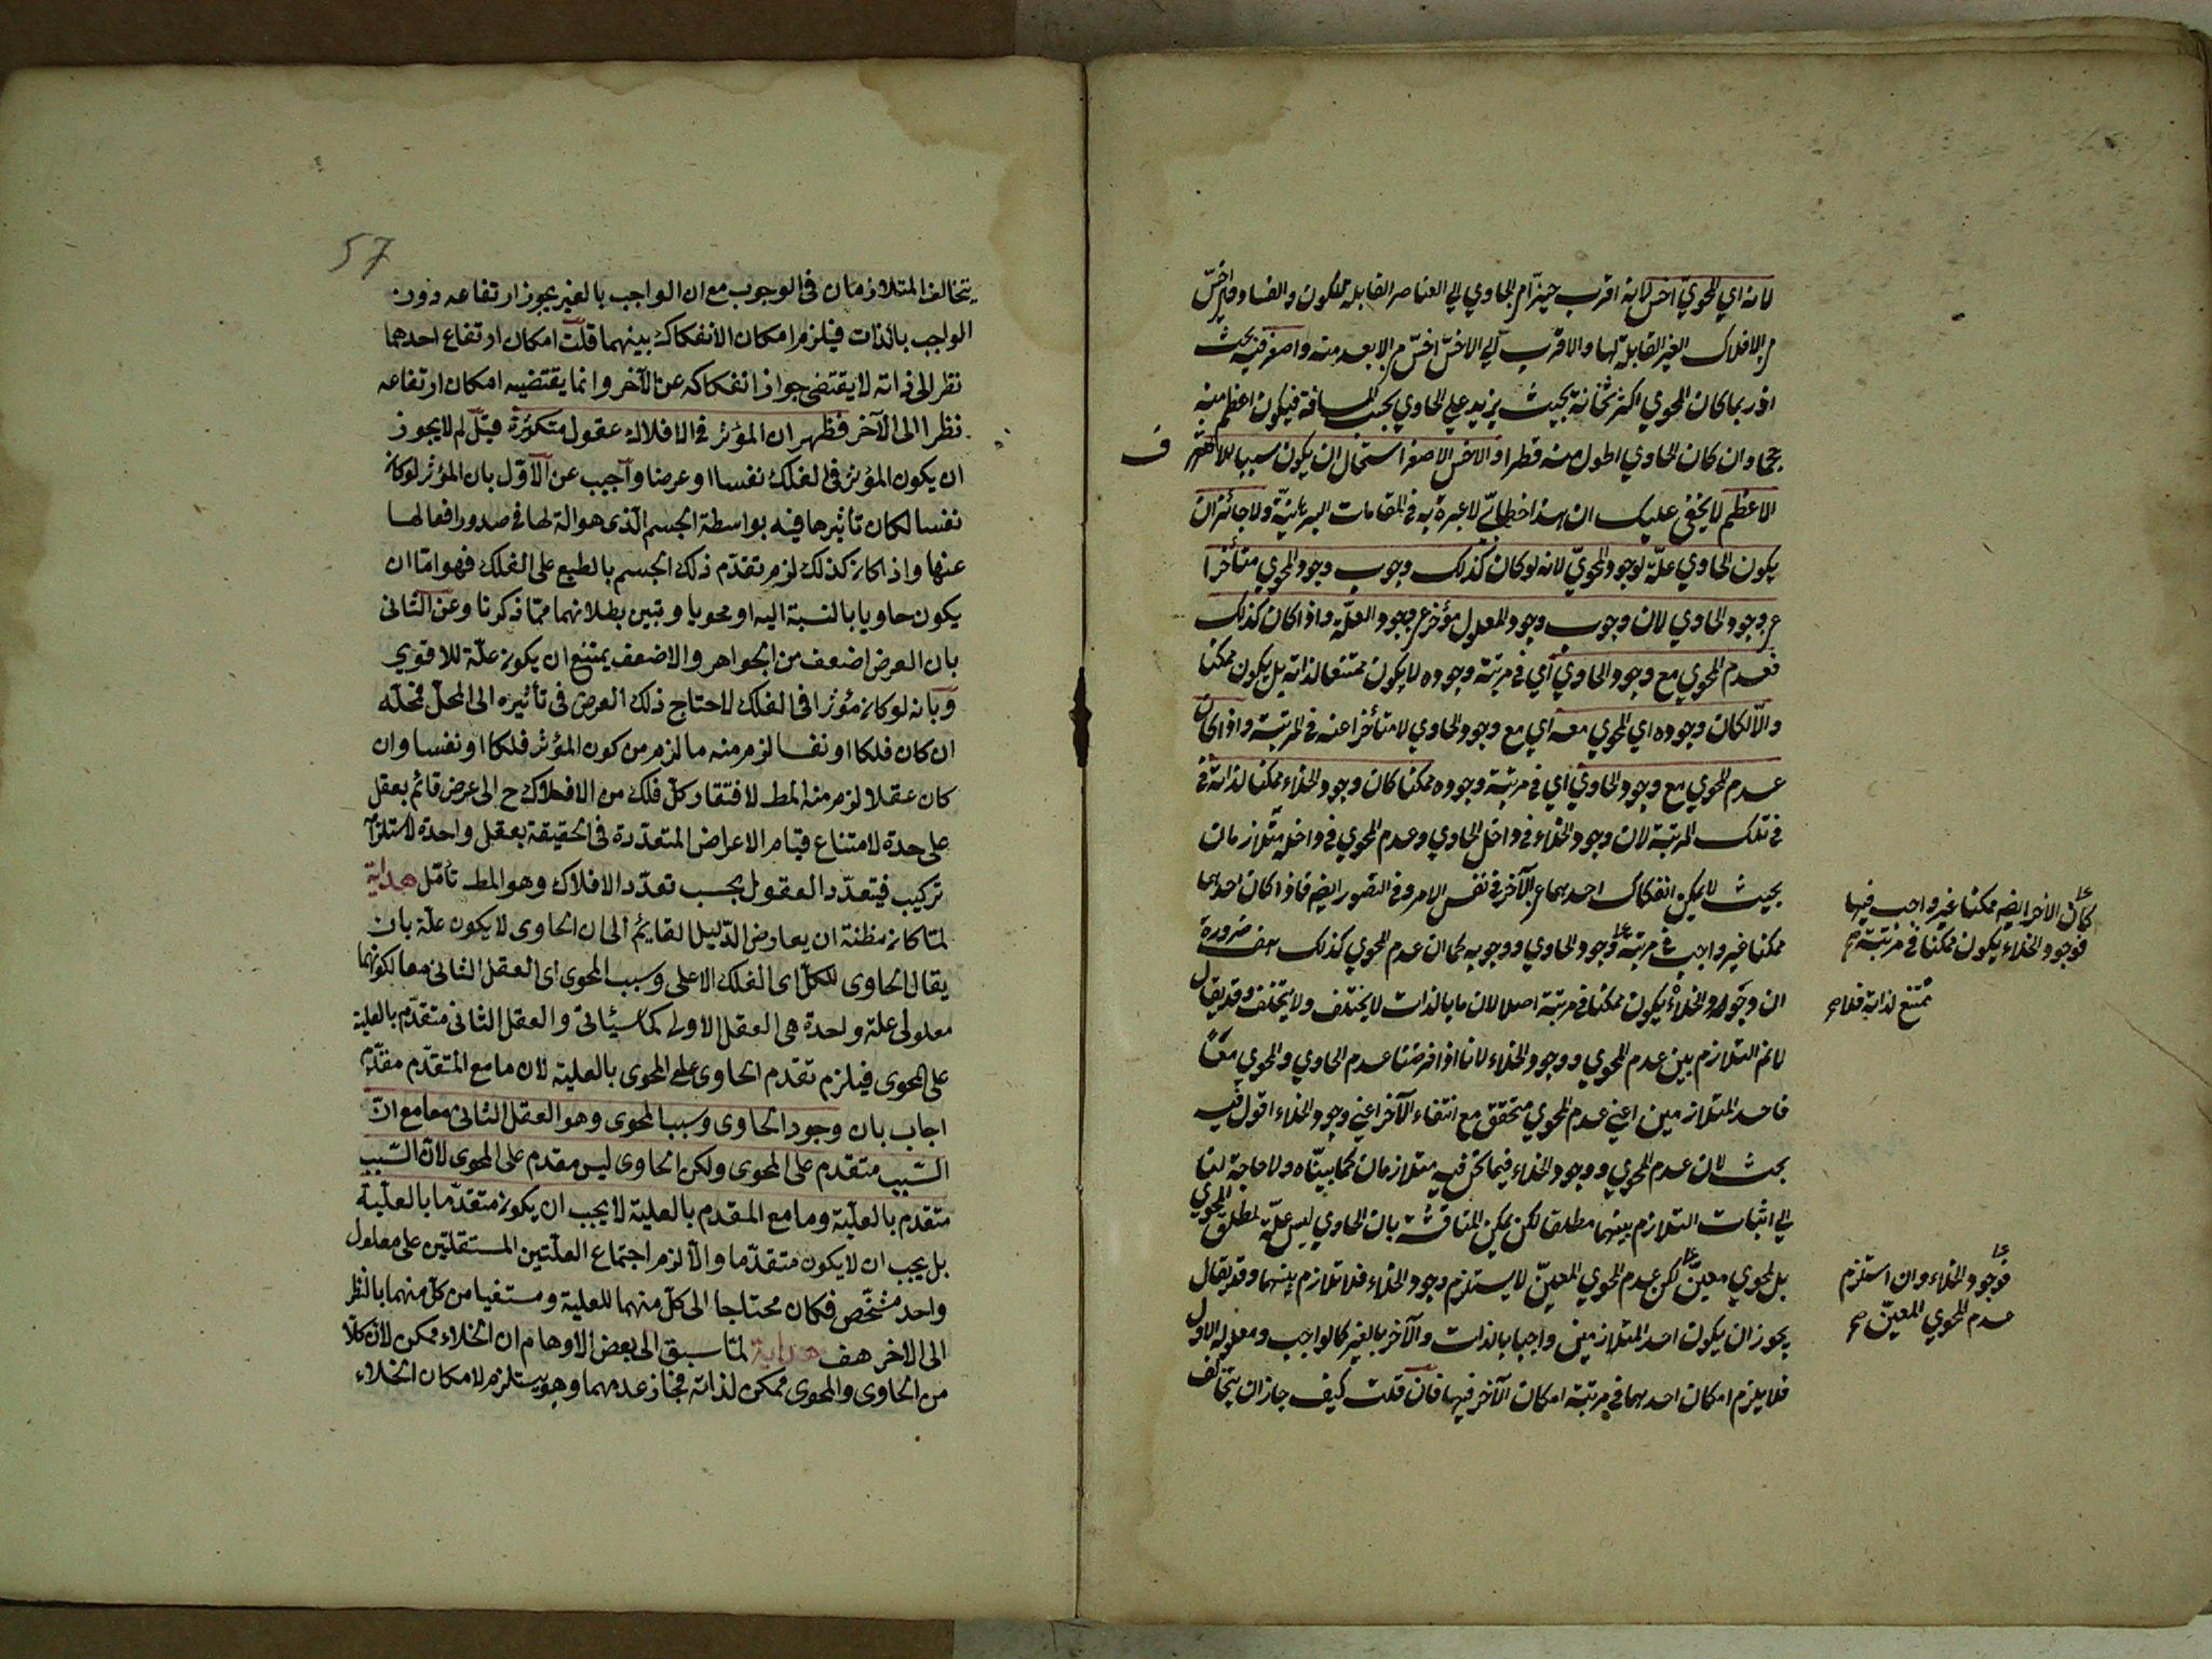 لانه اي المحوي اخس لانه اقرب حيزا من الحاوي الي العناصر القابلة للكون والفساد وهي اخسّ
من الافلاك الغير القابلة لها والاقرب الي الاخسّ اخسّ من الابعد منه واصغر فيه بحث
اذ ربما كان المحوي اكثر ثخانة بحيث يزيد علي الحاوي بحسب المسافة فيكون اعظم منه
حجما وان كان الحاوي اطول منه قطرا والاخس الاصغر استحال ان يكون سببا للاشرف
الاعظم لا يخفي عليك ان هذا خطابيّ لا عبرة به في المقامات البرهانيّة ولا جائز ان
يكون الحاوي علّة لوجود المحويّ لانه لو كان كذلك وجوب وجود المحوي متأخرا
عن وجود الحاوي لان وجوب وجود المعلول مؤخر عن وجود العلّة واذا كان كذلك
فعدم المحوي مع وجود الحاوي أي في مرتبة وجوده لا يكون ممتنعا لذاته بل يكون ممكنا
والّا لكان وجوده اي المحوي معه اي مع وجود الحاوي لا متأخرا عنه في المرتبة واذا كان
عدم المحوي مع وجود الحاوي اي في مرتبة وجوده ممكنا كان وجود الخلاء ممكنا لذاته في
في تلك المرتبة لان وجود الخلاء في داخل الحاوي وعدم المحوي في داخله متلازمان
بحيث لا يمكن انفكاك احدهما عن الآخر في نفس الامر وفي التصور ايضه فاذا كان احدهما
ممكنا غير واجب في مرتبة وجود الحاوي ووجوبه كما ان عدم المحوي كذلك هف ضرورة
ان وجود الخلاء يكون ممكنا في مرتبة اصلا لان ما بالذات لا يختلف ولا يتخلف وقد يقال
لا نم التلازم بين عدم المحوي ووجود الخلاء لانا اذا فرضنا عدم الحاوي والمحوي معًا
فاحد المتلازمين اعني عدم المحوي متحقق مع انتفاء الآخر اعني وجود الخلاء اقول فيه
بحث لان عدم المحوي ووجود الخلاء فيما نحن فيه متلازمان كما بيّناه ولا حاجة لنا
الي اثبات التلازم بينهما مطلقا لكن يمكن المناقشة بان الحاوي ليس علّة لمطلق المحوي
بل لمحوي معينّ لكن عدم المحوي المعينّ لا يستلزم وجود الخلاء فلا تلازم بينهما وقد يقال
يجوز ان يكون احد المتلازمين واجبا بالذات والآخر بالغير كالواجب ومعلوله الاول
فلا يلزم امكان احدهما في مرتبة امكان الآخر فيها فان قلت كيف جاز ان يتخالف
كان الاخر ايضه ممكنا غير واجب فيها
فوجود الخلاء يكون ممكنا في مرتبة صح
ممتنع لذاته فلا صح
فوجود الخلاء وان استلزم
عدم المحوي المعينّ صح
57
يتخالف المتلازمان في الوجوب مع ان الواجب بالغير يجوز ارتفاعه دون
الواجب بالذات فيلزم امكان الانفكاك بينهما قلت امكان ارتفاع احدهما
نظرا الى ذاته لا يقتضي جواز انفكاكه عن الآخر وانما يقتضيه امكان ارتفاعه
نظرا الى الآخر فظهر ان المؤثر في الافلاك عقول متكثرة قيل لم لا يجوز
ان يكون المؤثر في الفلك نفسا او عرضا واجيب عن الأوّل بان المؤثر لو كان
نفسا لكان تأثيرها فيه بواسطة الجسم الّذي هو الة لها في صدور افعالها
عنها واذا كان كذلك لزم تقدّم ذلك الجسم بالطبع على الفلك فهو امّا ان
يكون حاويا بالنسبة اليه او محويا وتبين بطلانهما ممّا ذكرنا وعن الثاني
بان العرض اضعف من الجواهر والاضعف يمتنع ان يكون علّة للاقوي
وبانه لو كان مؤثرا في الفلك لاحتاج ذلك العرض في تأثيره الى المحلّ فمحلّه
ان كان فلكا او نفسا لزم منه ما لزم من كون المؤثر فلكا او نفسا وان
كان عقلا لزم منه المط لافتقار كلّ فلك من الافلاك ح الى عرض قائم بعقل
على حدة لامتناع قيام الاعراض المتعدّدة في الحقيقة بعقل واحدة لاستلزامه
تركيب فيتعدّد العقول بحسب تعدّد الافلاك وهو المط تأمّل هداية
لمّا كان مظنة ان يعارض الدّليل القايم الى ان الحاوى لا يكون علّة بان
يقال الحاوى للكلّ اى الفلك الاعلى وسبب المحوى اى العقل الثاني معا لكونهما
معلولى علة واحدة هى العقل الاول كما سيأتي والعقل الثاني متقدّم بالعلية
على المحوى فيلزم تقدّم الحاوى على المحوى بالعلية لان ما مع المتقدّم مقدّم
اجاب بان وجود الحاوى وسبب المحوى وهو العقل الثاني معا مع انّ
السّبب متقدم على المحوى ولكن الحاوى ليس مقدم على المحوى لانّ السّبب
متقدم بالعلّية وما مع المقدم بالعلية لا يجب ان يكون متقدّما بالعلّية
بل يجب ان لا يكون متقدّما والّا لزم اجتماع العلّتين المستقلتين على معلول
واحد مشخّص فكان محتاجا الى كلّ منهما للعلية ومستغنيا من كلّ منهما بالنظر
الى الاخر هف هداية لمّا سبق الى بعض الاوهام ان الخلاء ممكن لانّ كلّا
من الحاوى والمحوى ممكن لذاته فجاز عدمهما وهو يستلزم لامكان الخلاء